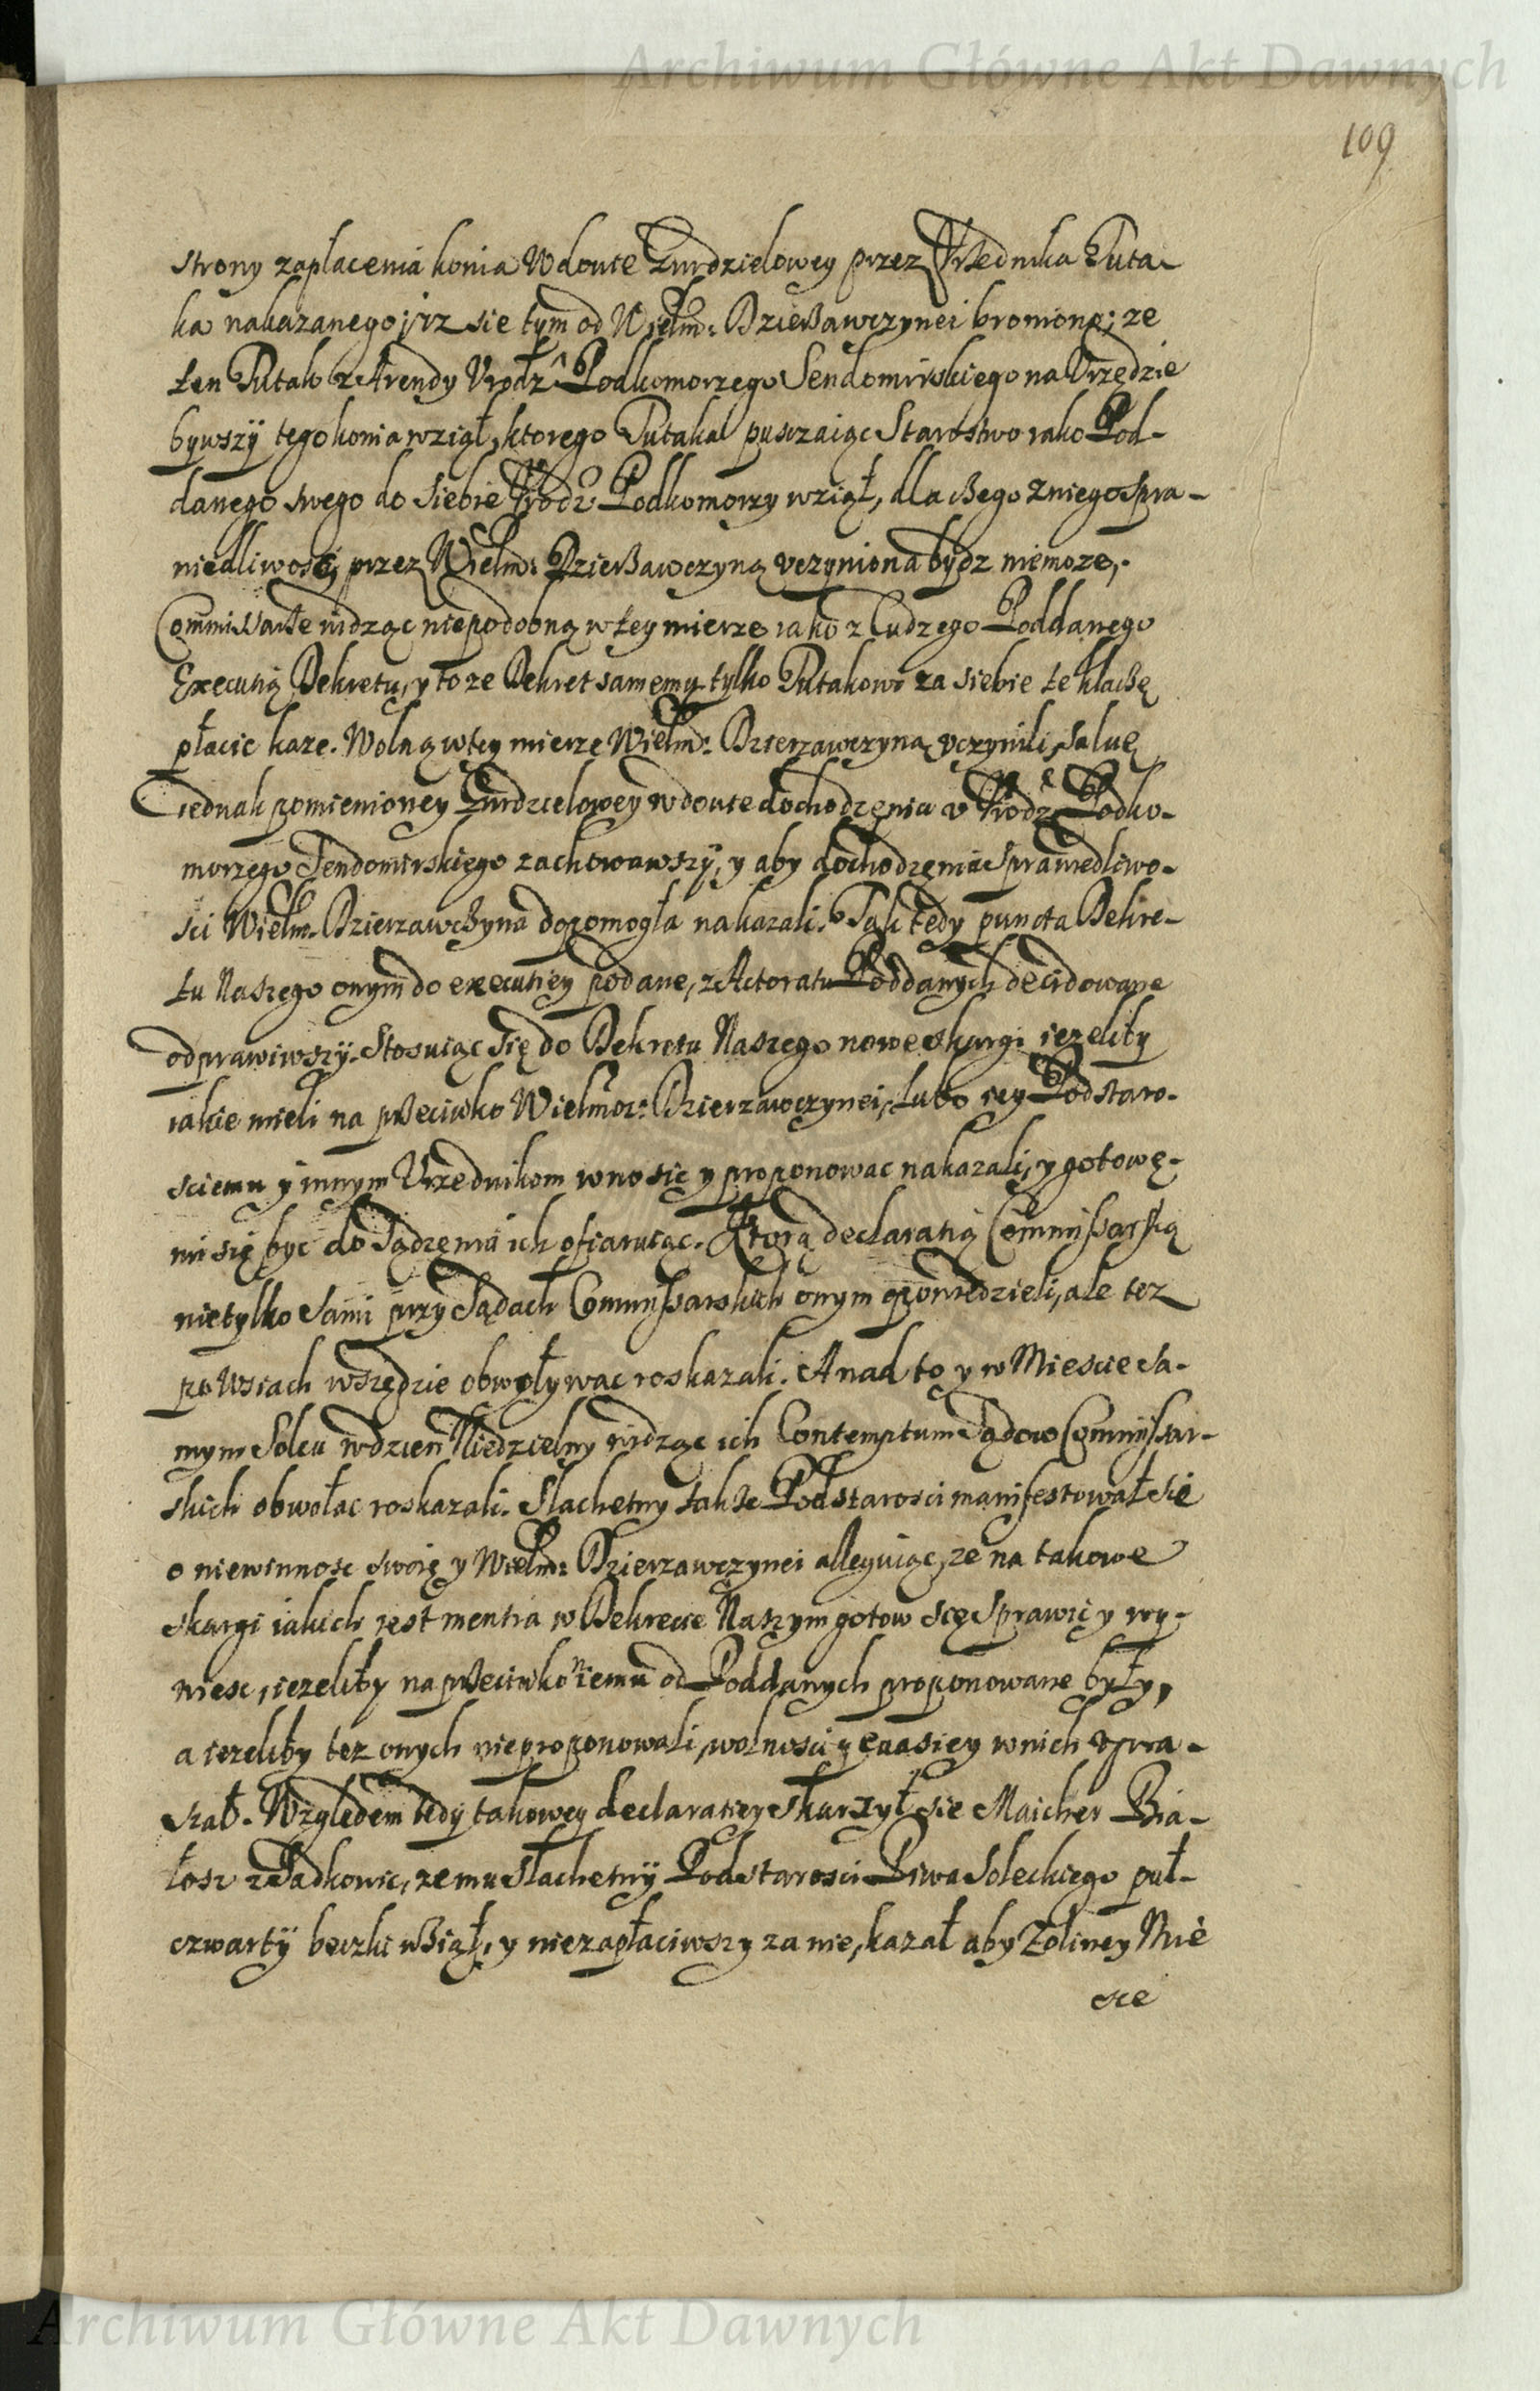 Archiwum Główne Akt Dawnych
109
strony zapłacenia konia Wdowie Zurdzielowey przez Vrzednika Puta-
ka nakazanego; yz sie tym od Wielm: Dzierzawczynei broniono; ze
ten Putak z Arendy Vrodz Podkomorzego Sendomirskiego na Vrzędzie
bywszÿ tego konia wziął, ktorego Putaka pusczaiąc Starostwo iako Pod-
danego swego do siebie Vrodz Podkomorzy wziął, dla czego z niego spra-
wiedliwosc przez Wielm: Dzierzawczyną vczyniona bydz niemoze,.
Commissarze widząc niepodobną w tey mierze iako z Cudzego Poddanego
Executią Dekretu, y to ze Dekret samemu tylko Putakowi za siebie te klaczę
płacic kaze. Wolną w tey mierze Wielm: Dzierzawczyną vczynili, Saluę
iednak pomienioney Zurdzielowey wdowie dochodzenia v Vrodz Podko-
morzego Sendomirskiego zachowawszÿ, y aby dochodzenia Sprawiedliwo-
sci Wielm. Dzierzawczyna dopomogła nakazali. Tak tedy puncta Dekre-
tu Naszego onym do executiey podane, z Actoratu Poddanych decidowane
odprawiwszÿ. Stosuiąc się do Dekretu Naszego nowe skargi iezeliby
iakie mieli na przeciwko Wielmoz: Dzierzawczynei, lubo iey Podstaro-
sciemu y innym Vrzednikom wnosic y proponowac nakazali, y gotowę-
mi się byc do Sądzenia ich ofiaruiąc. Ktorą declaratią Commissarską
nietylko Sami przy Sądach Commissarskich onym opowiedzieli, ale tez
po Wsiach wszędzie obwoływac roskazali. A nad to y w Miescie Sa-
mym Solcu w dzien Niedzielny widząc ich Contemptum Sądow Commissar-
skich obwołac roskazali. Slachetny takze Podstarosci manifestował sie
o niewinnosc swoię y Wielm: Dzierzawczynei alleguiąc, ze na takowe
skargi iakich iest mentia w Dekrecie Naszym gotow sięSprawic y wy-
niesc, iezeliby na przeciwko niemu od Poddanych proponowane były,
a iezeliby tez onych nieproponowali, wolnosci y euasiey w nich vpra-
szał. Względem tedy takowey declaratiey skarzył sie Maicher Bia-
łosz z Sadkowic, ze mu Slachetnÿ Podstarosci Piwa Soleckiego puł-
czwartÿ beczki wziął, y niezapłaciwszy za nie, kazał aby Zolnrey Mie
sce
Archiwum Główne Akt Dawnych